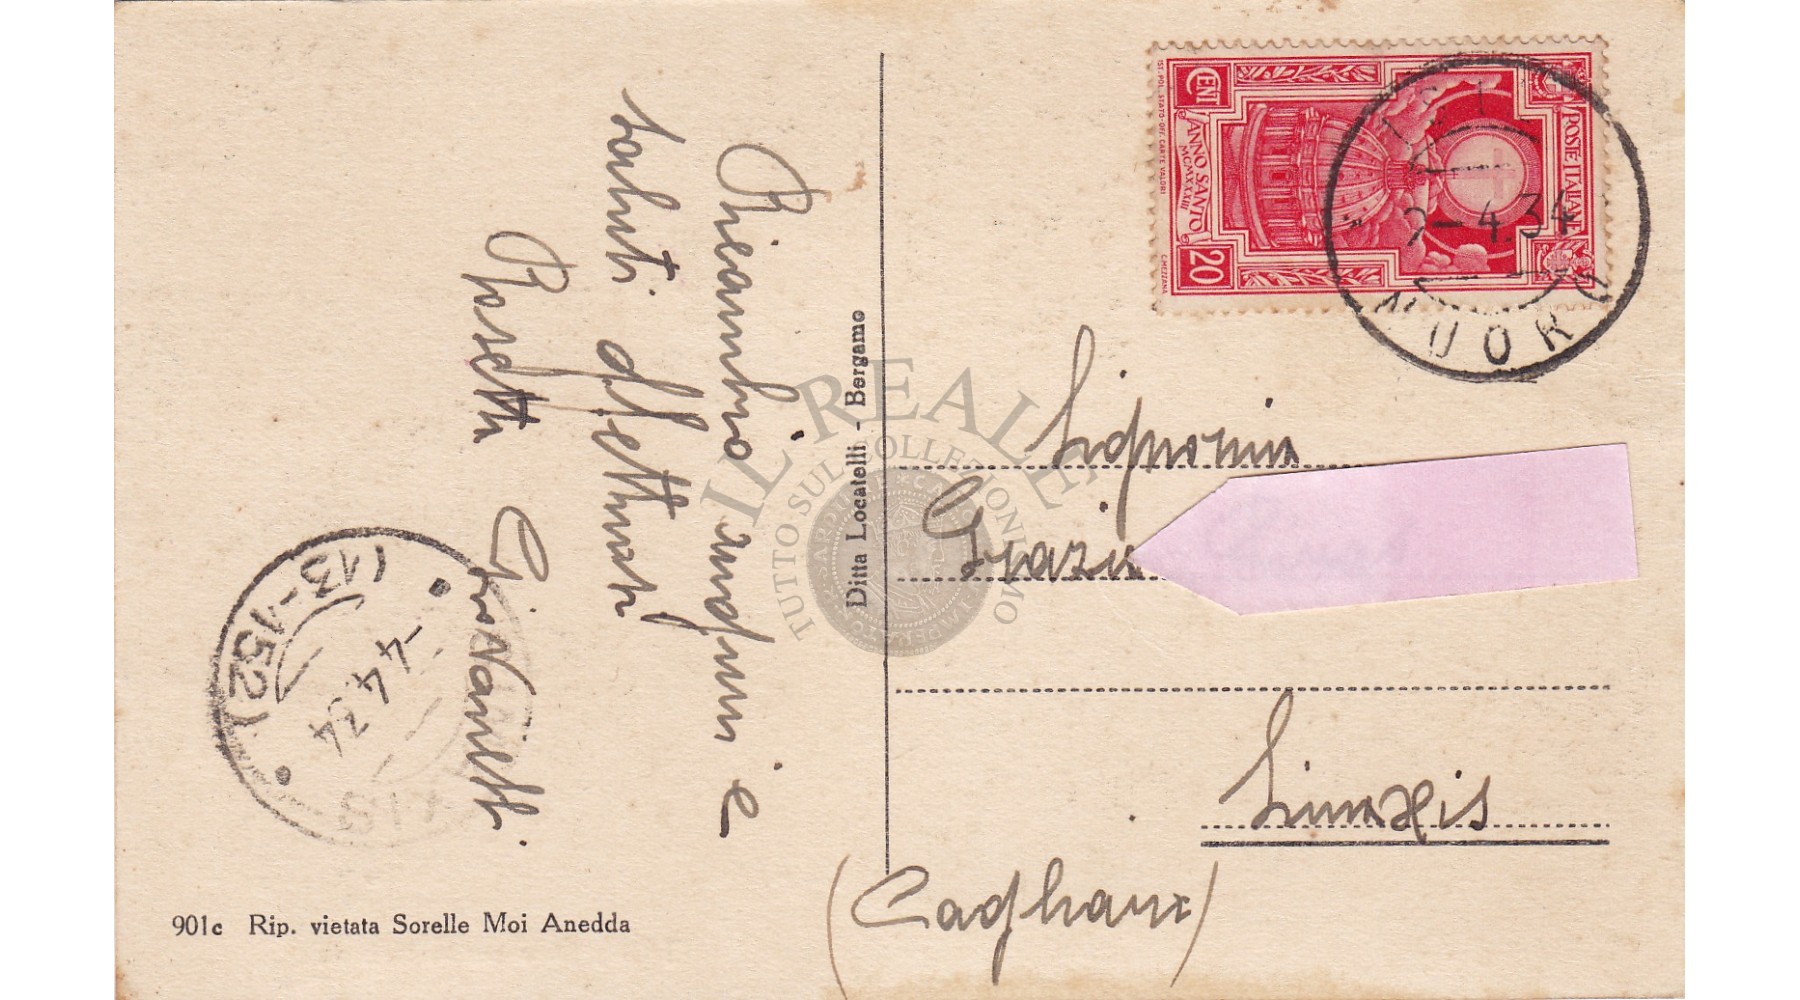 Ricambio auguri e
saluti affettuosi
Rosetta Giovanetti
Ditta Locatelli - Bergamo
901c Rip. vietata Sorelle Moi Anedda
CENT 20
ANNO SANTO
MCMXXXIII
POSTE ITALIANE
IST. POL. STATO-OFF. CARTE VALORI
C. MEZZANA
-4.34
NUORO
Signorina
Grazia
Simaxis
(Cagliari)
(13-152)
-4.4.34
IL REALE
TUTTO SUL COLLEZIONISMO